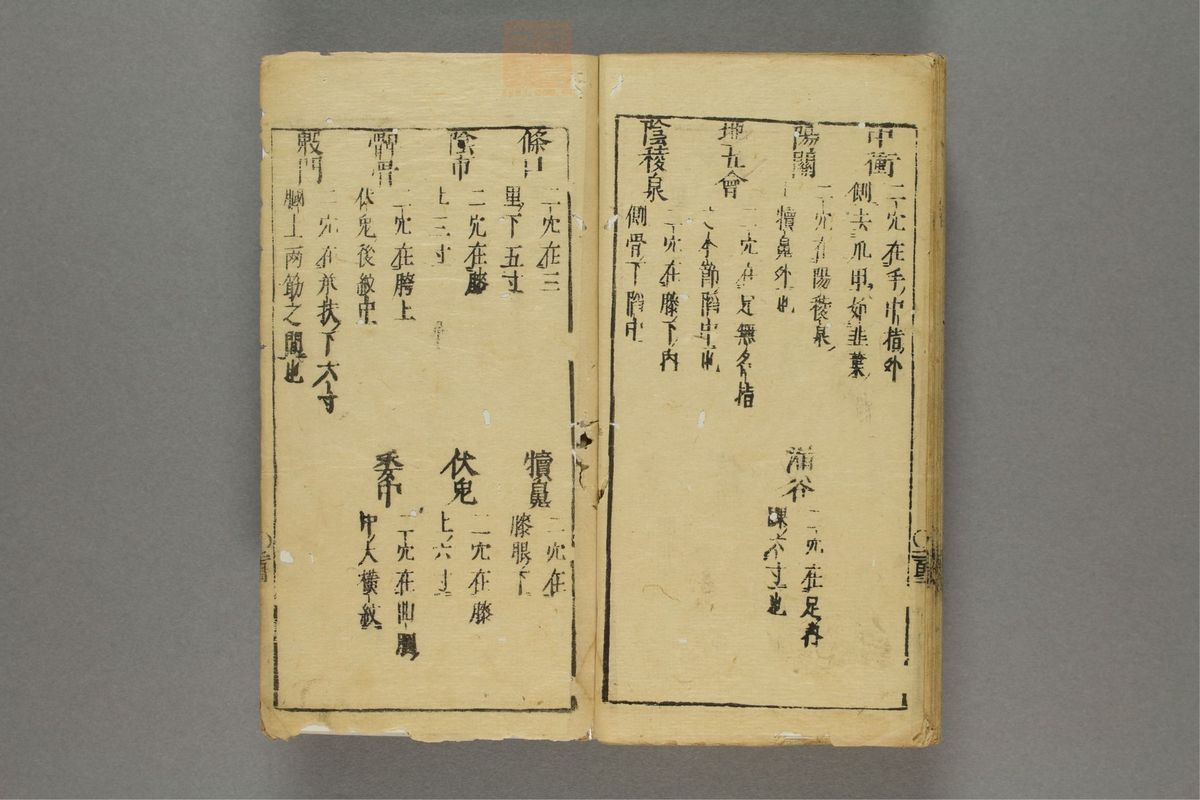 中衝
二穴在手中指外
側去爪甲如韭葉
陽關
二穴在陽稜泉
犢鼻外也
漏谷
二穴在足內
踝六寸也
地五會
二穴在足無名指
本節陷中也
陰稜泉
二穴在膝下內
側骨下陷中
條口
二穴在三
里下五寸
犢鼻
二穴在
膝眼下
陰市
二穴在膝
上三寸
伏兔
二穴在膝
上六寸
髀關
二穴在膝上
伏兔後紋中
委中
二穴在曲䐐
中大橫紋
殷門
二穴在承扶下六寸
膕上兩筋之間也